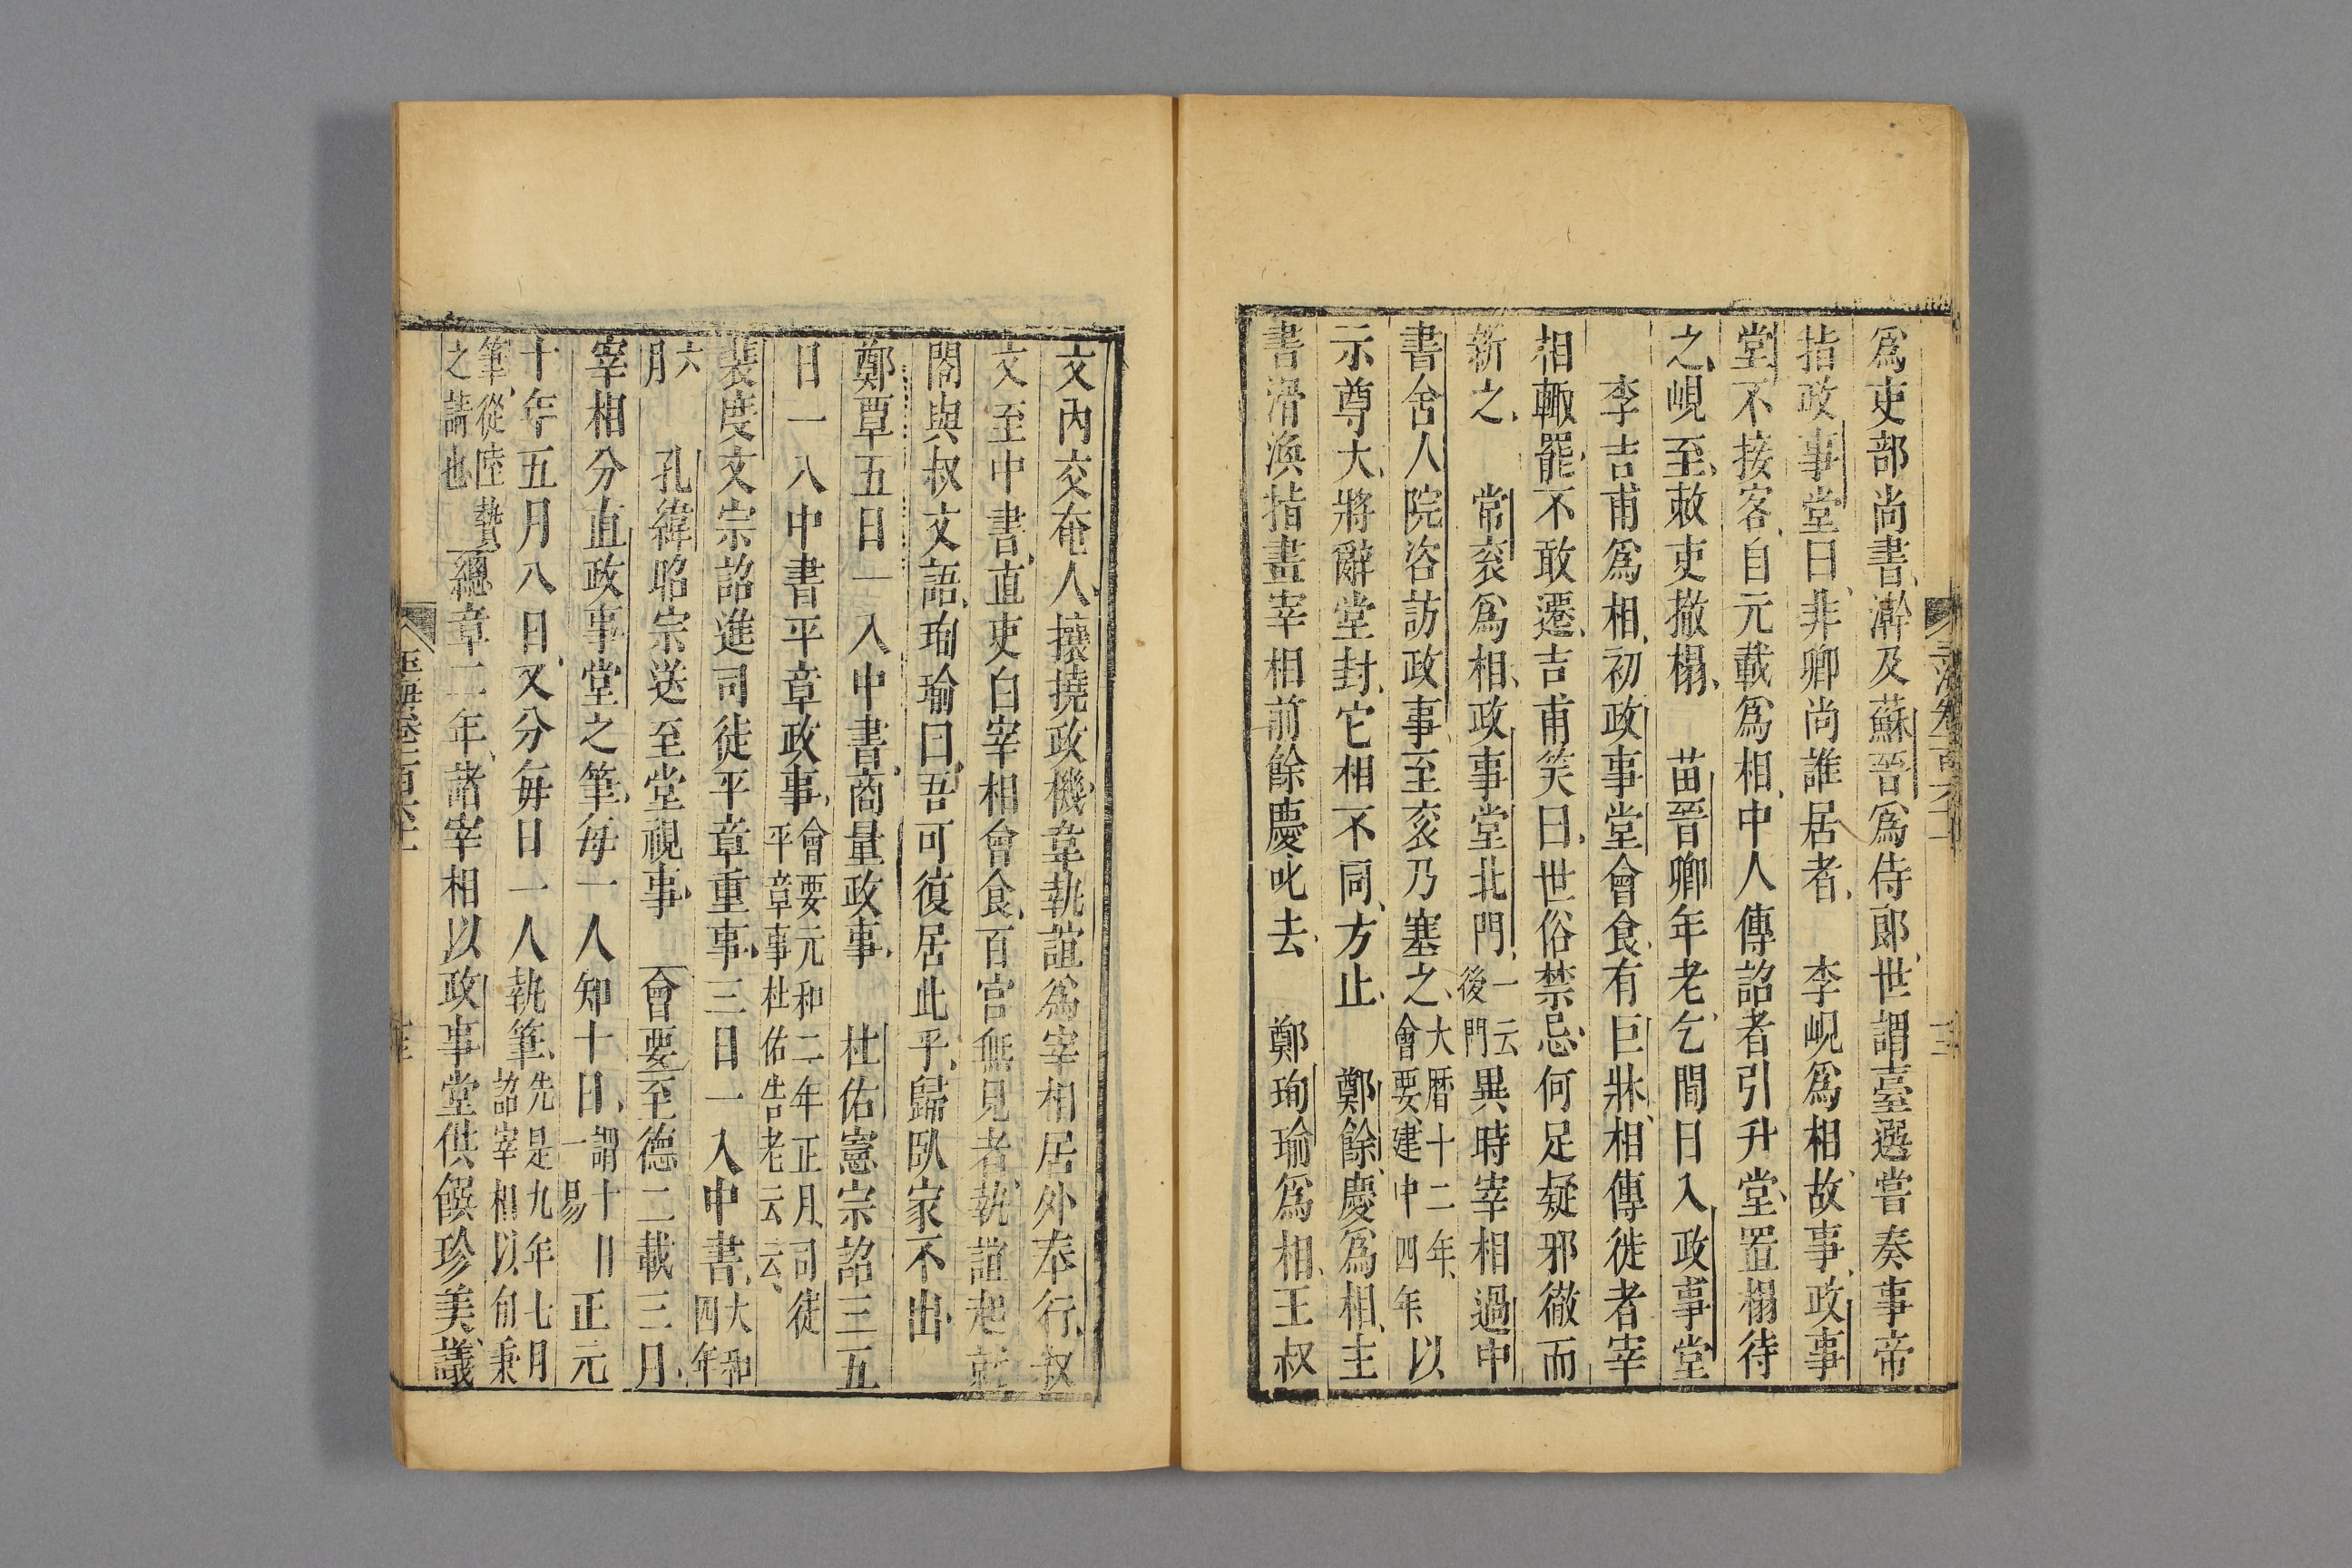 爲吏部尚書澣及蘇晉爲侍郞世謂臺選嘗奏事帝
指政事堂曰非卿尚誰居者　李峴爲相故事政事
堂不接客自元載爲相中人傳詔者引升堂置榻待
之峴至敕吏撤榻　苗晉卿年老乞間日入政事堂
李吉甫爲相初政事堂會食有巨牀相傳徙者宰
相輙罷不敢遷吉甫笑曰世俗禁忌何足疑邪徹而
新之　常衮爲相政事堂北門一云後門異時宰相過中
書舍人院咨訪政事至衮乃塞之大曆十二年會要建中四年以
示尊大將辭堂封它相不同方止　鄭餘慶爲相主
書滑渙指畫宰相前餘慶叱去　鄭珣瑜爲相王叔
文內交奄人攘撓政機韋執誼爲宰相居外奉行叔
文至中書直吏白宰相會食百官無見者執誼起就
閤與叔文語珣瑜曰吾可復居此乎歸臥家不出
鄭覃五日一入中書商量政事　杜佑憲宗詔三五
日一入中書平章政事會要元和二年正月司徒平章事杜佑告老云云
裴度文宗詔進司徒平章重事三日一入中書大和四年
六月　孔緯昭宗送至堂視事　會要至德二載三月
宰相分直政事堂之筆每一人知十日謂十日一易　正元
十年五月八日又分每日一人執筆先是九年七月詔宰相以旬秉
筆從陸贄之請也　總章二年諸宰相以政事堂供饌珍美議